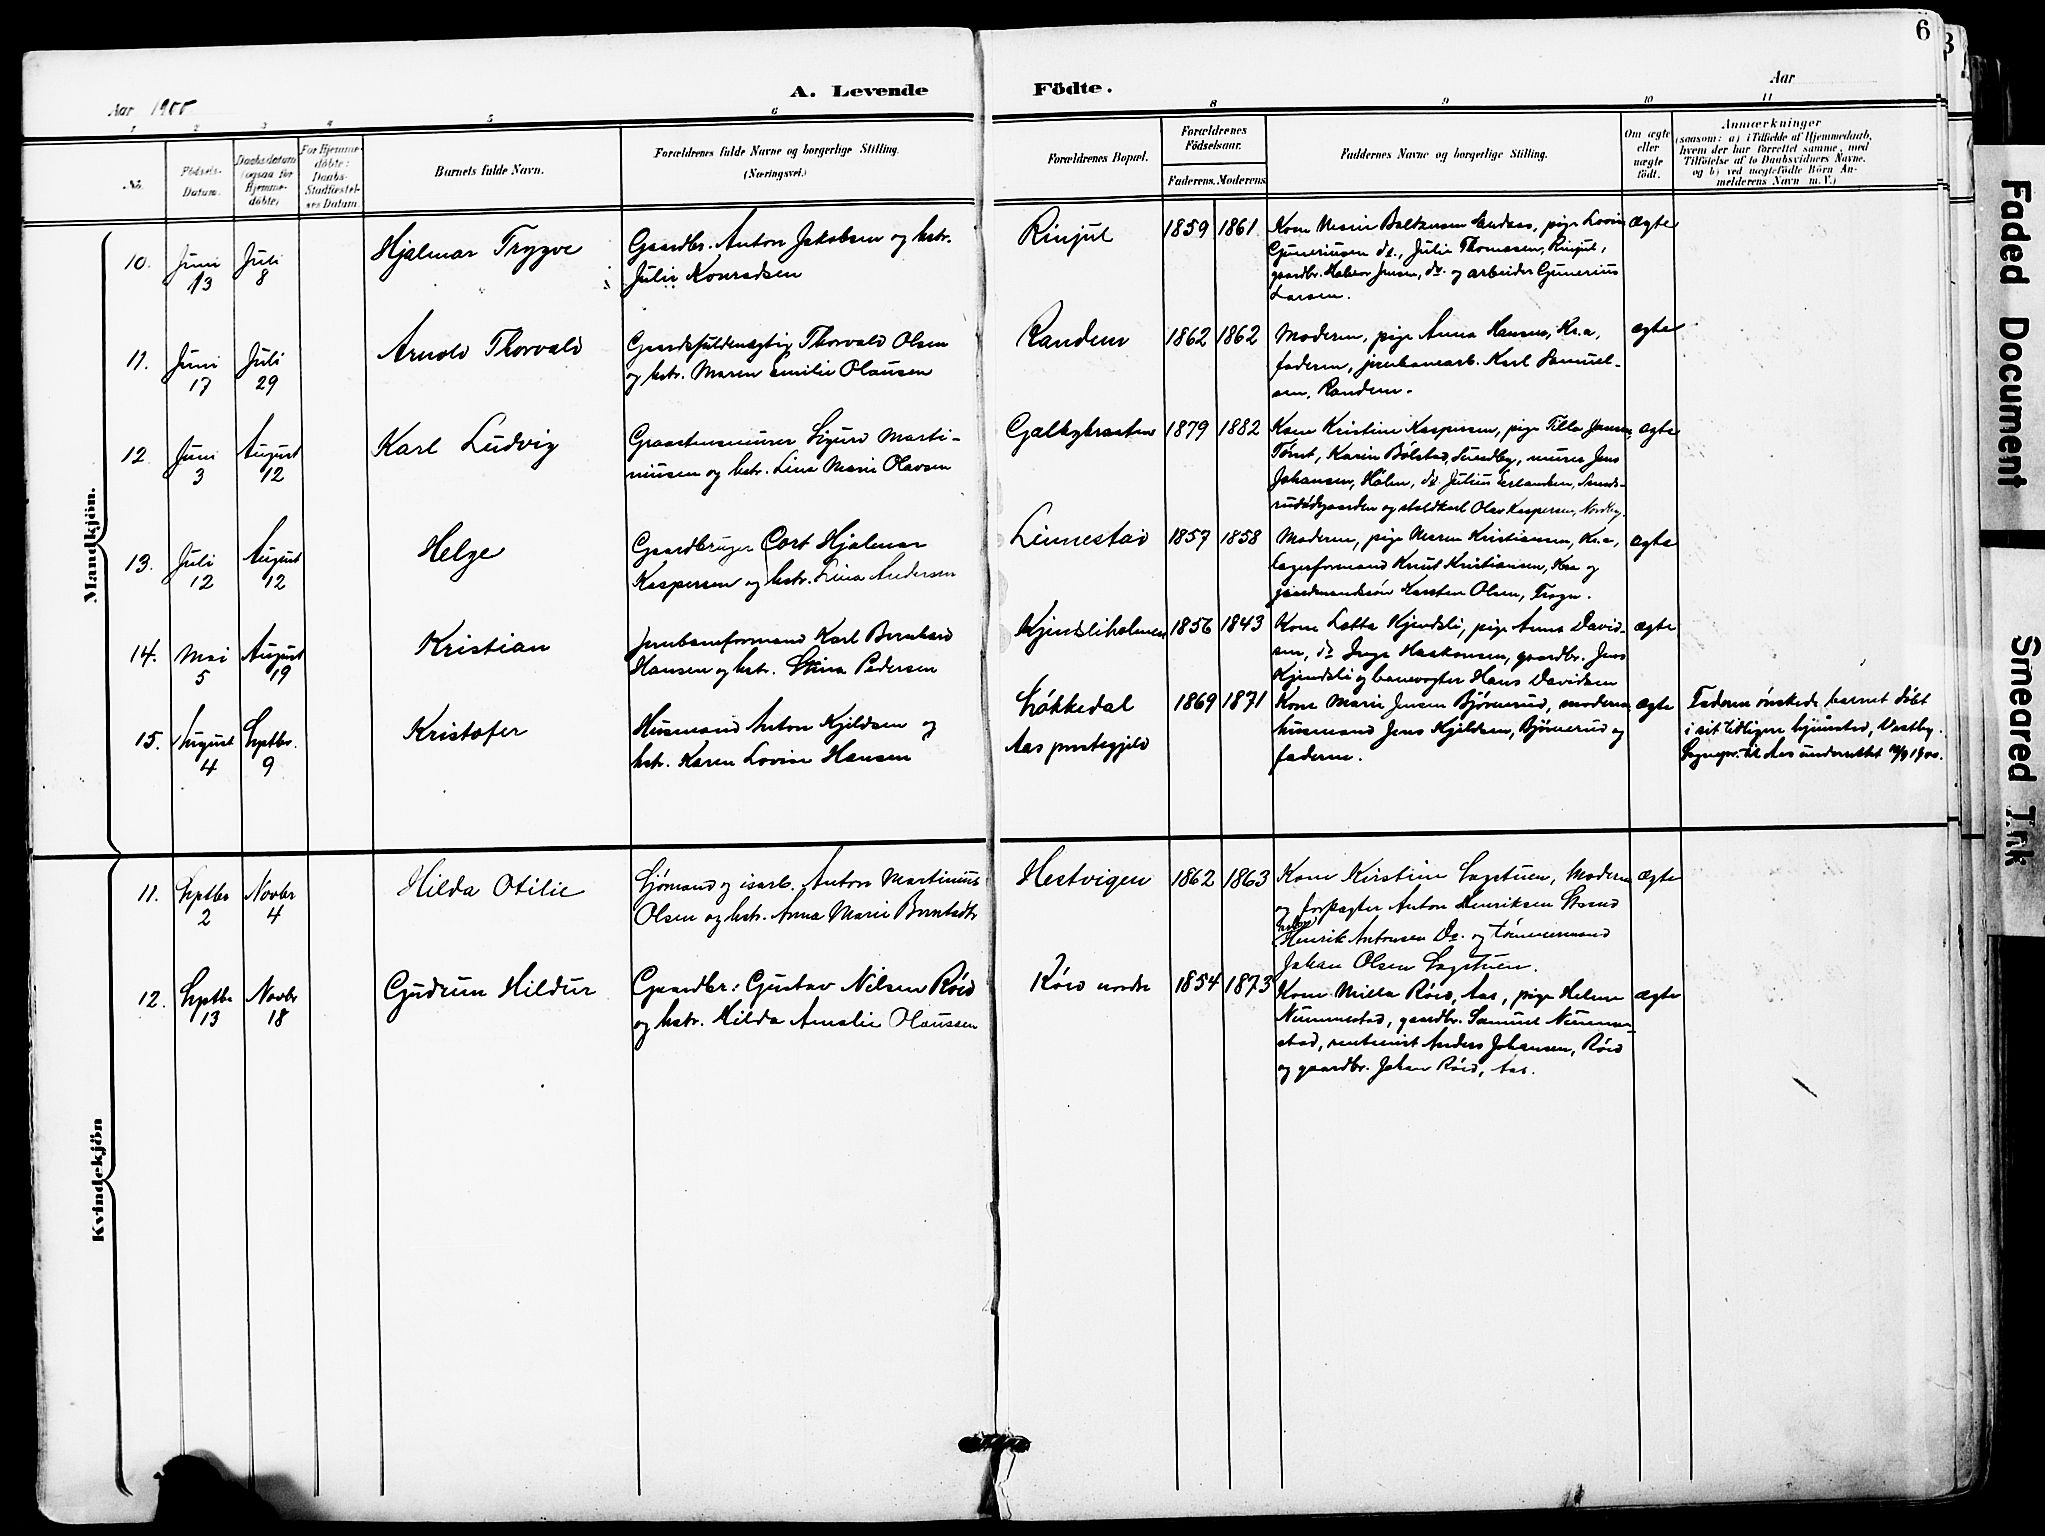 6
Aar 1900
A. Levende Födte.
Aar
1 2 3 4 5 6 8 9 10 11
No. Födsels-Datum. Daabsdatum (ogsaa for Hjemmedöbte) For Hjemmedöbte: Daabs-Stadfæstelses Datum. Barnets fulde Navn. Forældrenes fulde Navne og borgerlige Stilling. (Næringsvei.) Forældrenes Bopæl. Forældrenes Födselsaar. Faderens. Moderens. Faddernes Navne og borgerlige Stilling. Om ægte eller uægte födt. Anmærkninger
(saasom: a) i Tilfælde af Hjemmedaab,
hvem der har forrettet samme, med
Tilföielse af to Daabsvidners Navne.
og b) ved uægtefödte Börn Anmelderens Navn m. V.)
Mandkjön.
10. Juni 13 Juli 8 Hjalmar Trygve
Gaardbr. Anton Jakobsen og hstr.
Julie Konradsen
Rinjul 1859 1861
Kone Marie Baltzersen Sandaas, pige Lovise
Guneriusen do., Julie Thomassen, Rinjul,
gaardbr. Halvor Jensen, do. og arbeider Gunerius
Larsen.
ægte
11. Juni 17 Juli 29 Arnold Thorvald
Gaardsfuldmægtig Thorvald Olsen
og hstr. Maren Emilie Olausen
Randem 1862 1862
Moderen, pige Anna Hansen, Kr.a,
faderen, jernbanearb. Karl Samuel-
sen, Randem.
ægte
12. Juni 3 August 12 Karl Ludvig
Graastensmurer Sigurd Marti-
niusen og hstr. Lina Marie Olavsen
Galbybraaten 1879 1882
Kone Kristine Kaspersen, pige Tilla Jansen,
Tømt, Karin Bølstad, Sundby, murer Jens
Johansen, Hølen, do. Julius Erlandsen, Sunds-
rudødegaarden og staldkarl Olav Kaspersen, Nordby.
ægte
13. Juli 12 August 12 Helge
Gaardbruger Cort Hjalmar
Kaspersen og hstr. Lina Andersen
Linnestad 1857 1858
Moderen, pige Maren Kristiansen, Kr.a,
lagerformand Knut Kristiansen, Kra og
gaardmandssøn Karsten Olsen, Trogn.
ægte
14. Mai 5 August 19 Kristian
Jernbaneformand Karl Bernhard
Hansen og hstr. Stina Pedersen
Kjendsliholmen 1856 1843
Kone Lotta Kjendsli, pige Anna David-
sen, do Inga Haakonsen, gaardbr. Jens
Kjendsli og banevogter Hans Davidsen
ægte
15. August 4 Septbr. 9 Kristofer
Husmand Anton Kjeldsen og
hstr. Karen Lovise Hansen
Løkkedal
Aas prestegjeld
1869 1871
Kone Marie Jensen Bjørnerud, moderen,
husmand Jens Kjeldsen, Bjørnerud og
faderne.
ægte
Faderen ønskede barnet døbt
i sit tidligere hjemsted, Vestby.
Sognepr. til Aas underrettet 1900.
Kvindekjön
11. Septbr 2 Novbr 4 Hilda Otilie
Sjømand og isarb. Anton Martinius
Olsen og hstr. Anna Marie Berntsdtr
Hestvigen 1862 1863
Kone Kirstine Sagstuen, Moderen
og forpagter Anton Henriksen Strand
Henrik Antonsen Do. og tømmermand
Johan Olsen Sagstuen.
ægte
12. Septbr 13 Novbr 18 Gudrun Hildur
Gaardbr: Gustav Nilsen Røed
og hstr. Hilda Amalie Olaussen
Røed nordre 1854 1873
Kone Milla Røed, Aas, pige Helene
Nummestad, gaardbr. Samuel Numme-
stad, rentenist Anders Johansen, Røed
og gaardbr. Johan Røed, Aas.
ægte
Faded Document
Smeared Ink